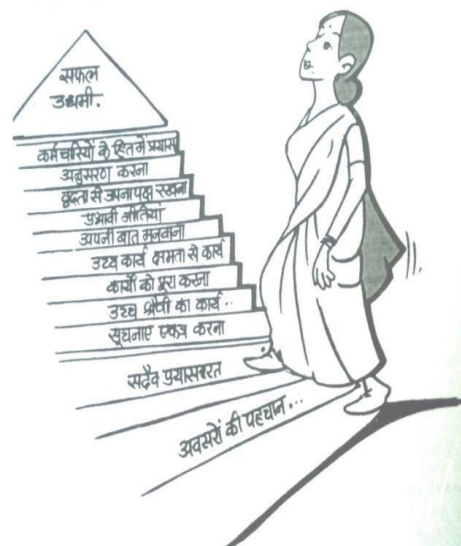 सफल
उद्यमी.
कर्मचारियों के हित में प्रयास
अनुसरण करना
दृढ़ता से अपना पक्ष रखना
प्रभावी नीतियां
अपनी बात मनवाना
उच्च कार्य क्षमता से कार्य
कार्यो को पूरा करना
उच्च श्रेणी का कार्य..
सूचनाएं एकत्र करना
सदैव प्रयासरत
अवसरों की पहचान...